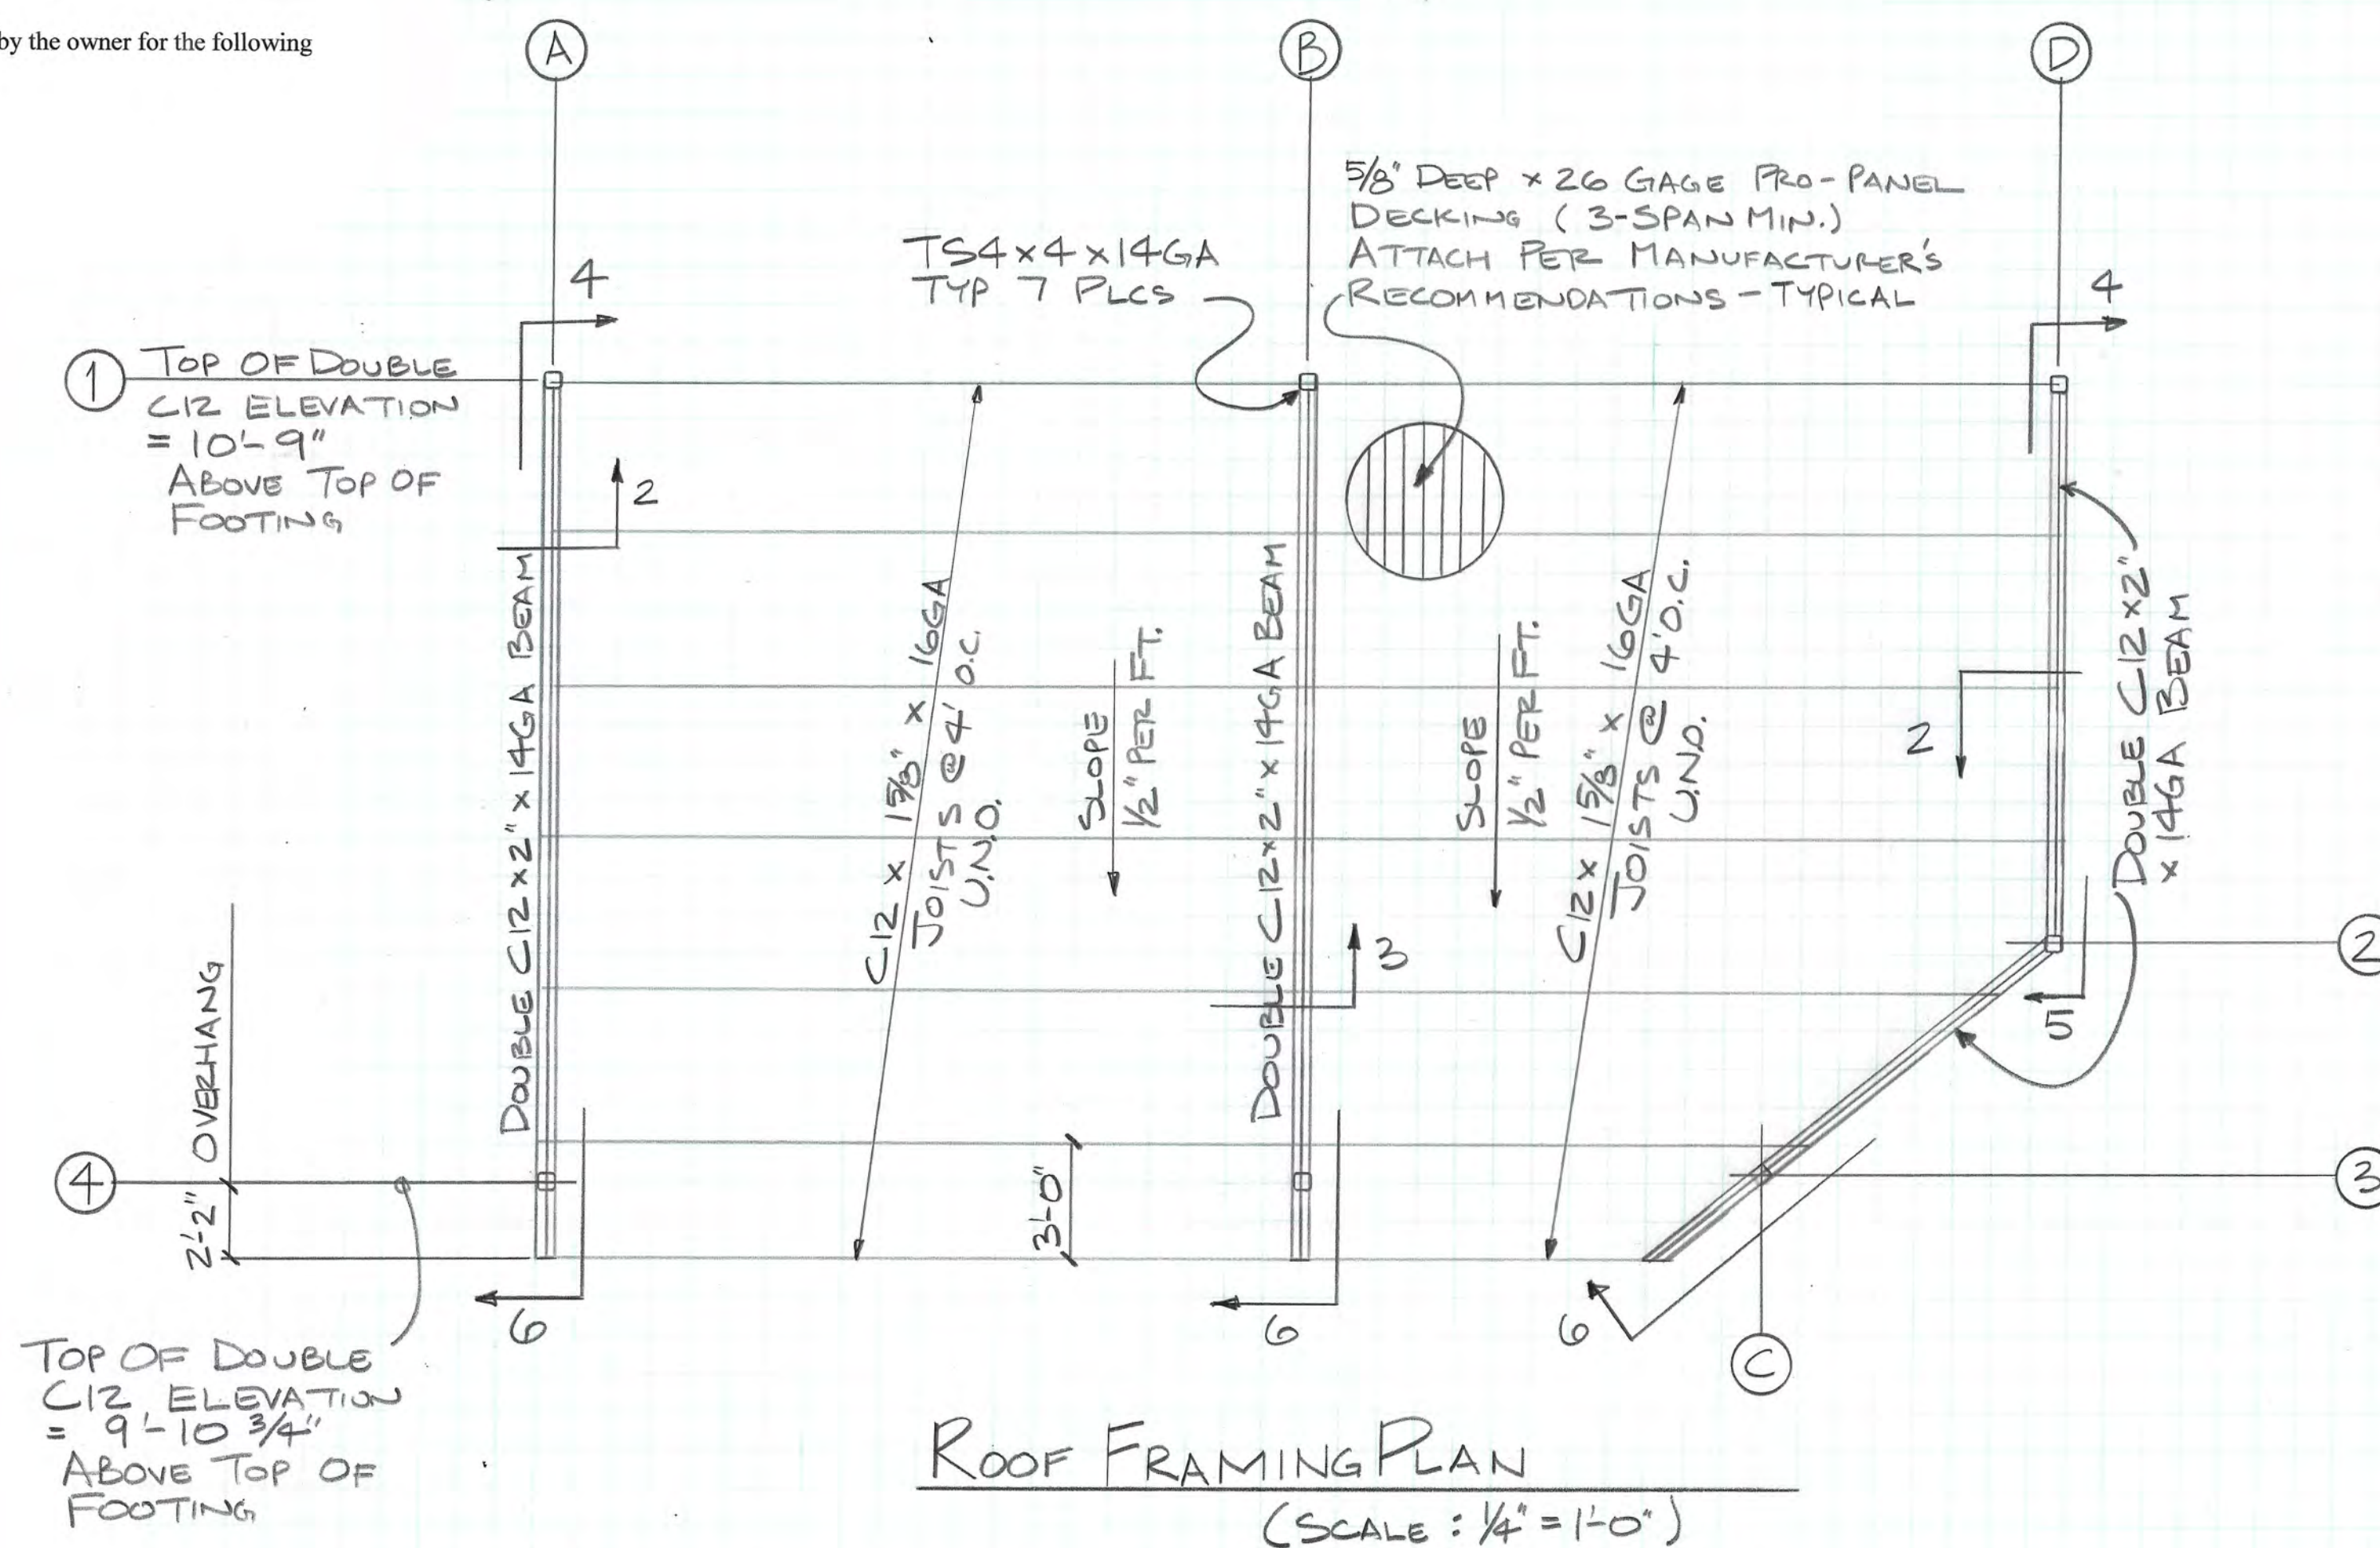 by the owner for the following
A
B
D
5/8" DEEP x 26 GAGE PRO-PANEL
DECKING (3-SPAN MIN.)
ATTACH PER MANUFACTURER'S
RECOMMENDATIONS - TYPICAL
TS4x4x14GA
TYP 7 PLCS
4
4
1
TOP OF DOUBLE
C12 ELEVATION
= 10'-9"
ABOVE TOP OF
FOOTING
2
DOUBLE C12x2"x14GA BEAM
C12 x 1 5/8" x 16GA
JOISTS @ 4' O.C.
U.N.O.
SLOPE
1/2" PER FT.
DOUBLE C12x2"x14GA BEAM
3
SLOPE
1/2" PER FT.
C12 x 1 5/8" x 16GA
JOISTS @ 4' O.C.
U.N.O.
2
DOUBLE C12x2"
x 14GA BEAM
2
5
3
2'-2" OVERHANG
4
3'-0"
6
6
6
C
TOP OF DOUBLE
C12 ELEVATION
= 9'-10 3/4"
ABOVE TOP OF
FOOTING
ROOF FRAMING PLAN
(SCALE : 1/4" = 1'-0")